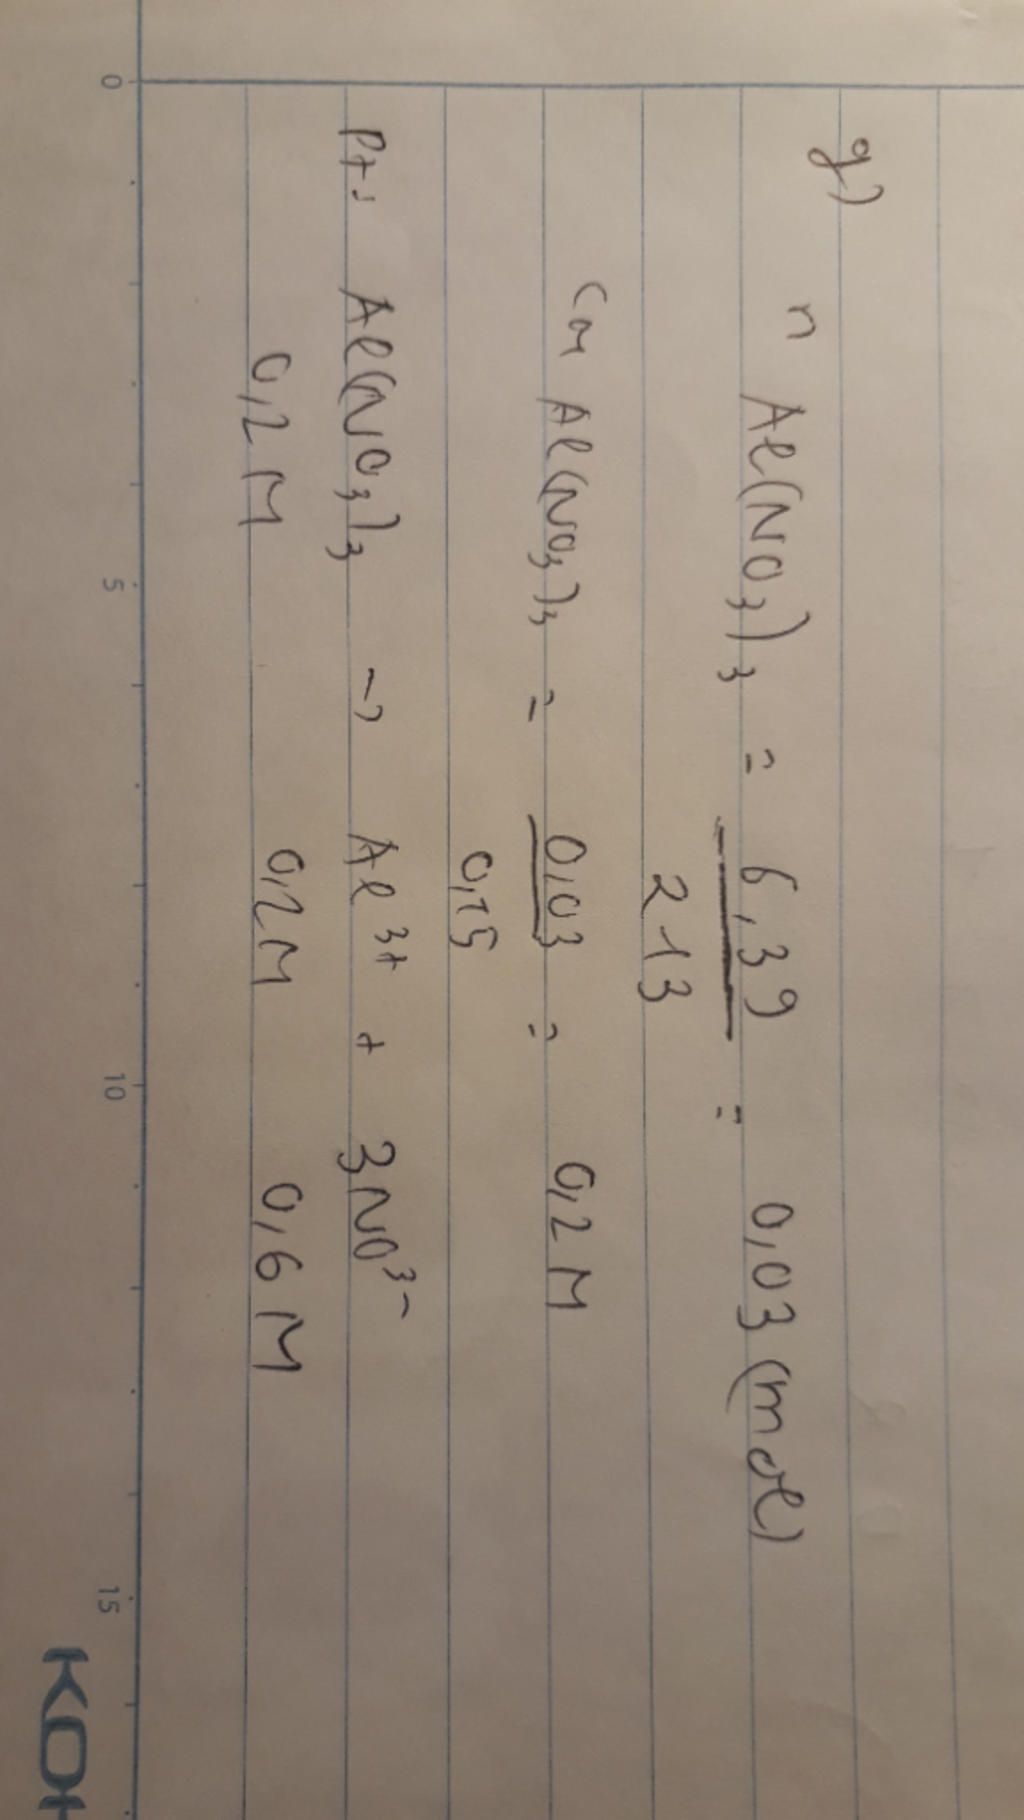 g)
n Al(NO3)3 = 6,39 = 0,03 (mol)
213
CM Al(NO3)3 = 0,03 = 0,2 M
0,15
Pt: Al(NO3)3 → Al3+ + 3NO3-
0,2 M 0,2 M 0,6 M
0 5 10 15